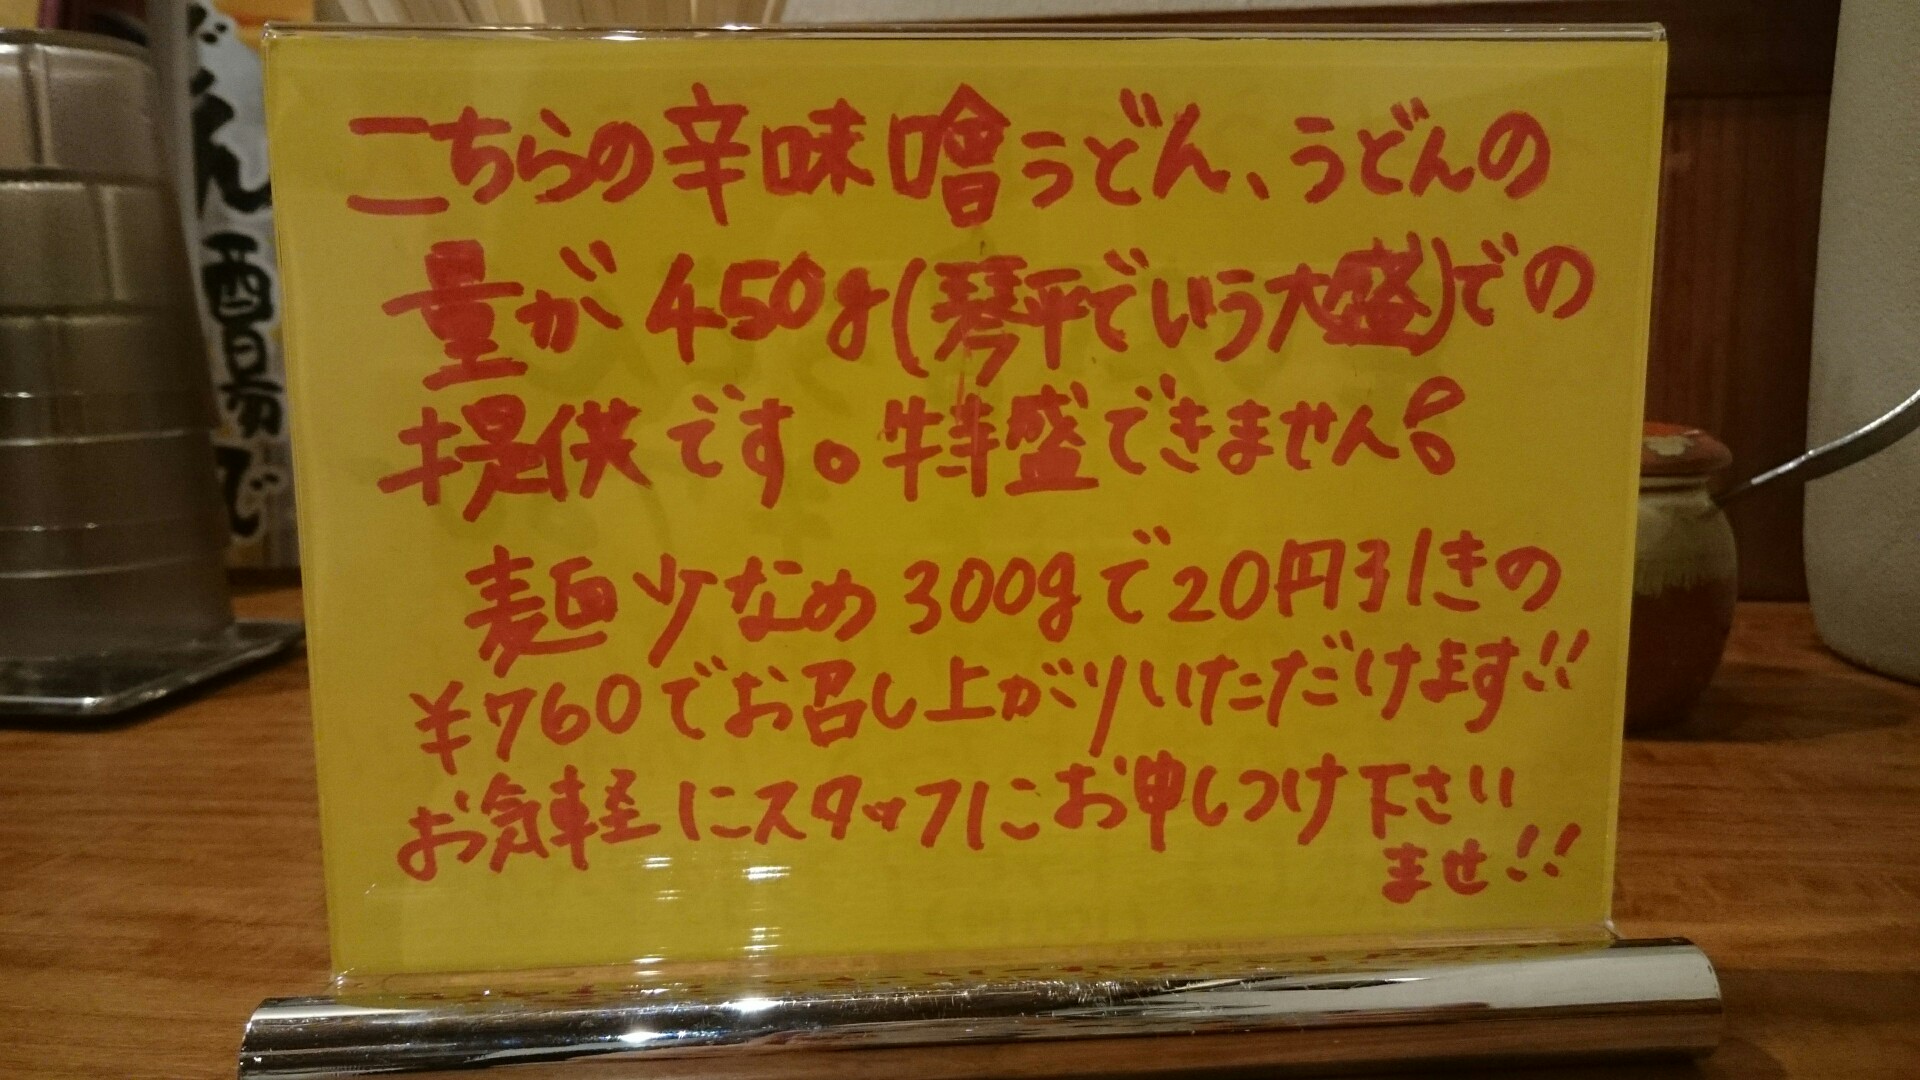 こちらの辛味噌うどん、うどんの
量が450g(琴平でいう大盛)での
提供です。特盛できません!
麺少なめ300gで20円引きの
¥760でお召し上がりいただけます!!
お気軽にスタッフにお申しつけ下さい
ませ!!